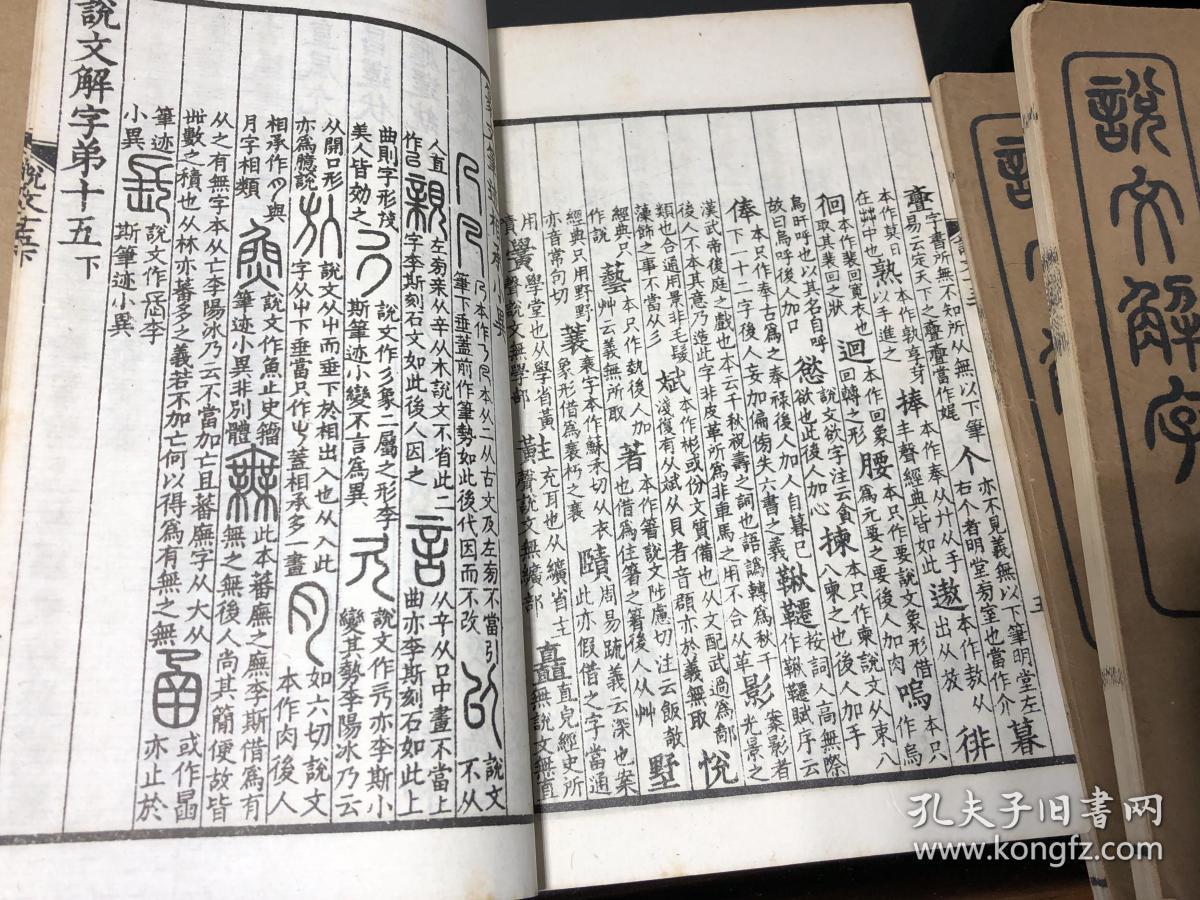 字書所無不知所从無以下筆易云定天下之亹亹當作娓 个 亦不見義無以下筆明堂左右个者明堂㫄室也當作介 暮
本作莫日在茻中也 熟 本作孰享芽以手進之 捧 本作奉从廾从手丰聲經典皆如此 遨 本作敖从出从放 徘
徊 本作裴回寬衣也取其裴回之狀 迴 本作回象回轉之形 腰 本只作要說文象形借爲玄要之要後人加肉 嗚 本只作烏
烏旴呼也以其名自呼故曰烏呼後人加口 慾 說文欲字注云貪欲也此後人加心 揀 本只作柬說文从束八八柬之也後人加手
俸 本只作奉古爲之奉祿後人加人 自暮已下一十二字後人妄加偏傍失六書之義 鞦韆 按詞人高無際作鞦韆賦序云
漢武帝後庭之戲也本云千秋祝壽之詞也語譌轉爲秋千後人不本其意乃造此字非皮革所爲非車馬之用不合从革 影 案影者光景之
類也合通用景非毛髮藻飾之事不當从彡 斌 本作彬或份文質備也从文配武過爲鄙淺復有从斌从貝者音頵亦於義無取 悅
經典只作說 藝 本只作埶後人加艸云義無所取 著 本作箸說文陟慮切注云飯敧也借爲住箸之箸後人从艸 墅
經典只用野野亦音常句切 蓑 衰字本作蘇禾切从衣象形借爲衰朽之衰 賾 周易疏義云深也案此亦假借之字當通用嘖
黌 學堂也从學省黃聲說文無學部 黈 充耳也从纊省主聲說文無纊部 矗 直皃經史所無說文無直部
相承小異
筆下垂蓋前作筆勢如此後代因而不改 本从二从古文及左㫄不當引 說文不从
人直作 親 左㫄亲从辛从木說文不省此二字李斯刻石文如此後人因之 言 从辛从口中畫不當上曲亦李斯刻石如此上
曲則字形茂美人皆効之 說文作 象二屬之形李斯筆迹小變不言爲異 說文作 亦李斯小變其勢李陽冰乃云
从開口形亦爲臆說 說文从屮而垂下於相出入也从入此字从屮下垂當只作 蓋相承多一畫 如六切說文本作肉後人
相承作 與月字相類 魚 說文作魚止史籀筆迹小異非別體 無 此本蕃廡之廡李斯借爲有無之無後人尚其簡便故皆
从之有無字本从亡李陽冰乃云不當加亡且蕃廡字从大从卌數之積也从林亦蕃多之義若不加亡何以得爲有無之無 或作 亦止於
筆迹小異 說文作 李斯筆迹小異
說文解字弟十五下
說文解字
孔夫子旧书网
www.kongfz.com